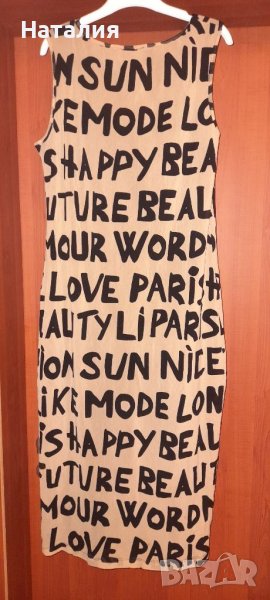 Наталия
ON SUN NICE
KE MODE LO
IS HAPPY BEA
UTURE BEAU
MOUR WORD
LOVE PARIS
BEAUTY LI PARIS
ION SUN NICE
LIKE MODE LON
IS HAPPY BEAU
FUTURE BEAUT
MOUR WORD
LOVE PARIS
БАЗАР